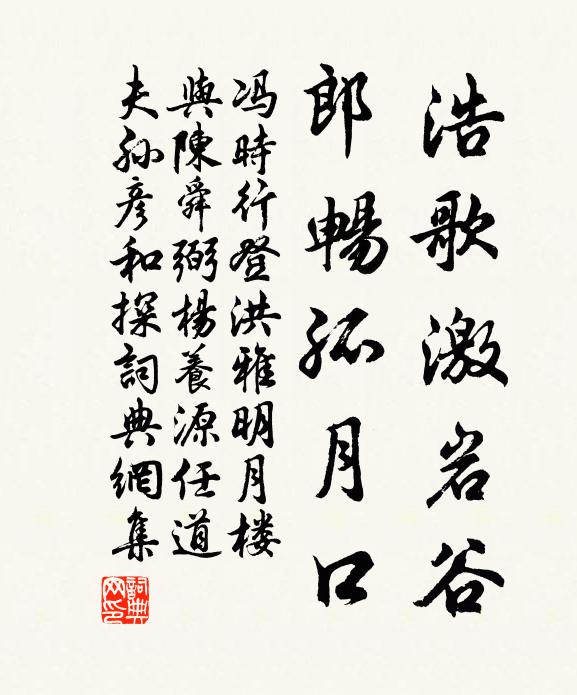 浩歌激岩谷
郎暢孤月口
冯時行登洪雅明月楼
與陳舜弼楊養源任道
夫孙彦和探詞典網集
詞典網印